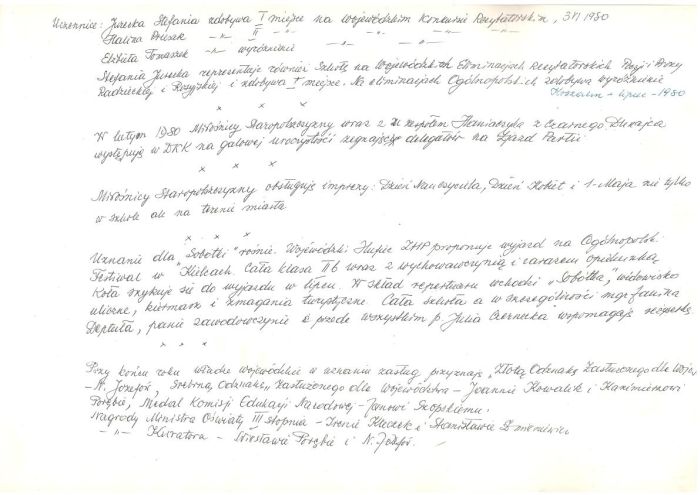 Uczennice: Jurecka Stefania zdobywa I miejsce na Wojewódzkim Konkursie Recytatorskim, 3VI 1980
Halina -"- II -"- -"- -"-
Elżbieta Tomaszek -"- wyróżnienie -"- -"-
Stefania Jurecka reprezentuje również Szkołę na Wojewódzkich Eliminacjach Recytatorskich Poezji i Prozy
Radzieckiej i Rosyjskiej i zdobywa I miejsce. Na eliminacjach Ogólnopolskich zdobywa wyróżnienie
Koszalin - lipiec - 1980
x x x
W lutym 1980 Miłośnicy Staropolszczyzny wraz z zespołem z Czarnego Dunajca
występują w DKK na galowej uroczystości żegnającej delegatów na Zjazd Partii
x x x
Miłośnicy Staropolszczyzny obsługują imprezy: Dzień Nauczyciela, Dzień Kobiet i 1-Maja nie tylko
w szkole ale na terenie miasta
x x x
Uznanie dla "Sobótki" rośnie. Wojewódzki Hufiec ZHP proponuje wyjazd na Ogólnopolski
Festiwal w Kielcach. Cała klasa II b wraz z wychowawczynią i zarazem opiekunką
Koła szykuje się do wyjazdu w lipcu. W skład repertuaru wchodzi "Sobótka", widowisko
uliczne, kiermasz i zmagania turystyczne. Cała szkoła a w szczególności mgr Janina
Deptuła, panie zawodowczynie a przede wszystkim p. Julia Czernecka wspomagają
x x x
Przy końcu roku władze wojewódzkie w uznaniu zasług przyznają "Złotą Odznakę Zasłużonego dla Woj.
- N. Józefoń, Srebrną Odznakę" Zasłużonego dla Województwa - Joannie Kowalik i Kazimierzowi
Porębie, Medal Komisji Edukacji Narodowej - Janowi Skopskiemu.
Nagrody Ministra Oświaty III stopnia - Irenie Kleczek i Stanisławie
-"- Kuratora - Wiesławie Porębie i N. Józefoń.